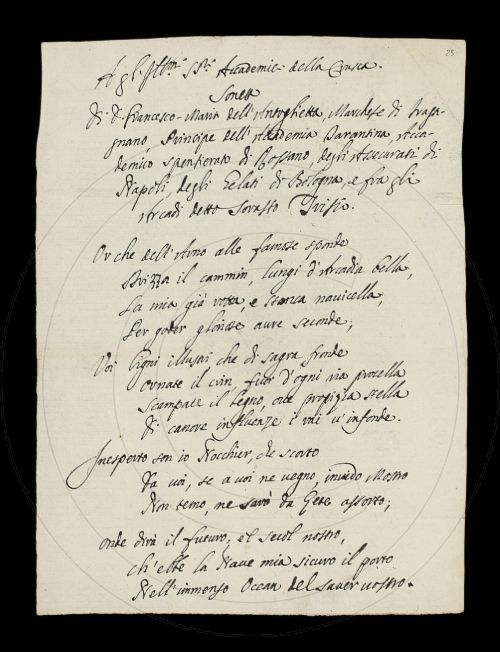 23
Agl' Ill.mi SS.ri Accademici della Crusca.
Sonetto
Di D. Francesco-Maria dell'Antoglietta, Marchese di Fragagnano, Principe dell'Accademia
Tarantina, Accademico Spensierato di Rossano, degli Assicurati di
Napoli, degli Gelati di Bologna, e fra gli
Arcadi detto Sorasto Trisio.
Or che dell'Arno alle famose sponde
Drizza il cammin, lungi d'Arcadia bella,
La mia già rotta, e stanca navicella,
Per goder gloriose aure seconde;
Voi Cigni illustri che di sagra fronde
Ornate il crin, fuor d'ogni ria procella
Scampate il legno, ove propizia stella
Di canore influenze i rai v'infonde.
Inesperto son io Nocchier, che scorto
Da voi, se a voi ne vegno, invido Mostro
Non temo, ne sarò da Gete assorto;
Onde dirà il futuro, e'l secol nostro,
ch'ebbe la Nave mia sicuro il porto
Nell'immenso Ocean del saver vostro.